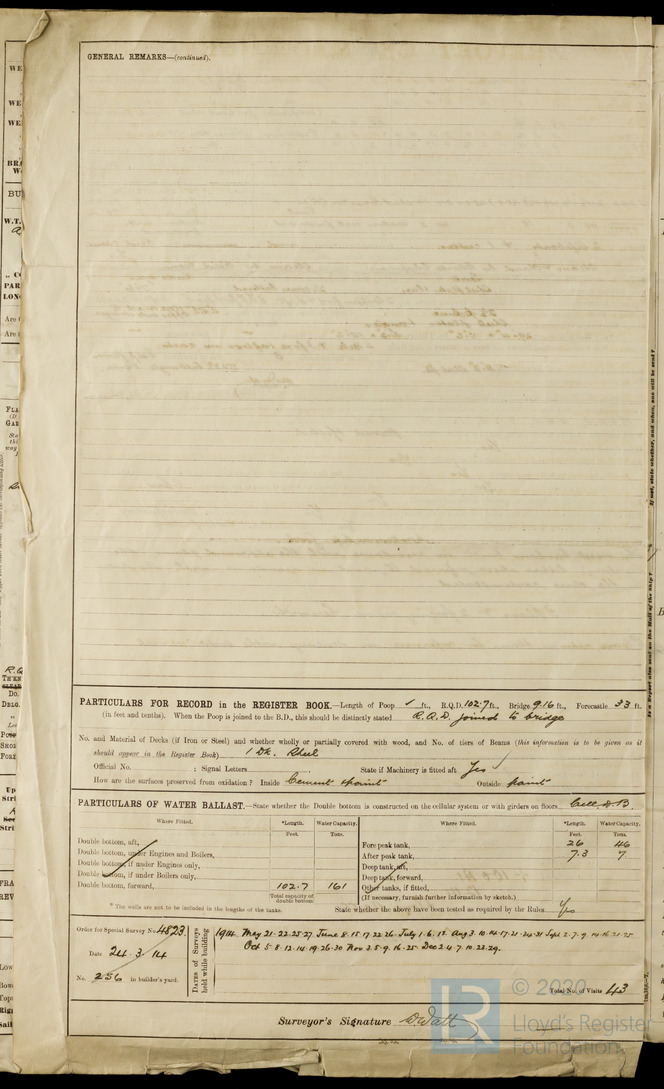 GENERAL REMARKS—(continued).
PARTICULARS FOR RECORD in the REGISTER BOOK.—Length of Poop ft., R.Q.D. 102·7 ft., Bridge 9·16 ft., Forecastle 33 ft.
(in feet and tenths). When the Poop is joined to the B.D., this should be distinctly stated R.Q.D. joined to bridge
No. and Material of Decks (if Iron or Steel) and whether wholly or partially covered with wood, and No. of tiers of Beams (this information is to be given as it
should appear in the Register Book) 1 Dk. Steel
Official No. ; Signal Letters State if Machinery is fitted aft Yes
How are the surfaces preserved from oxidation? Inside Cement & paint Outside paint
PARTICULARS OF WATER BALLAST.—State whether the Double bottom is constructed on the cellular system or with girders on floors Cell. D.B.
Where Fitted. *Length. Water Capacity. Where Fitted. *Length. Water Capacity.
Feet. Tons. Feet. Tons.
Double bottom, aft, Fore peak tank, 26 46
Double bottom, under Engines and Boilers, After peak tank, 7·3 7
Double bottom, if under Engines only, Deep tank, aft,
Double bottom, if under Boilers only, Deep tank, forward,
Double bottom, forward, 102·7 161 Other tanks, if fitted,
Total capacity of double bottom (If necessary, furnish further information by sketch.)
* The wells are not to be included in the lengths of the tanks. State whether the above have been tested as required by the Rules Yes
Order for Special Survey No. 4823
Date 24·3·14
No. 256 in builder's yard.
DATES of Surveys held while building
1914. May 21·22·25·27 June 8·15·17·22·26· July 1·6·15 Aug 3·10·14·17·21·24·31 Sept 2·7·9·14·16·21·25
Oct 5·8·12·14·19·26·30 Nov 3·5·9·16·25· Dec 2·4·7·10·23·29.
Total No. of Visits 43
Surveyor's Signature D Watt
© 2020
LR
Lloyd's Register
Foundation